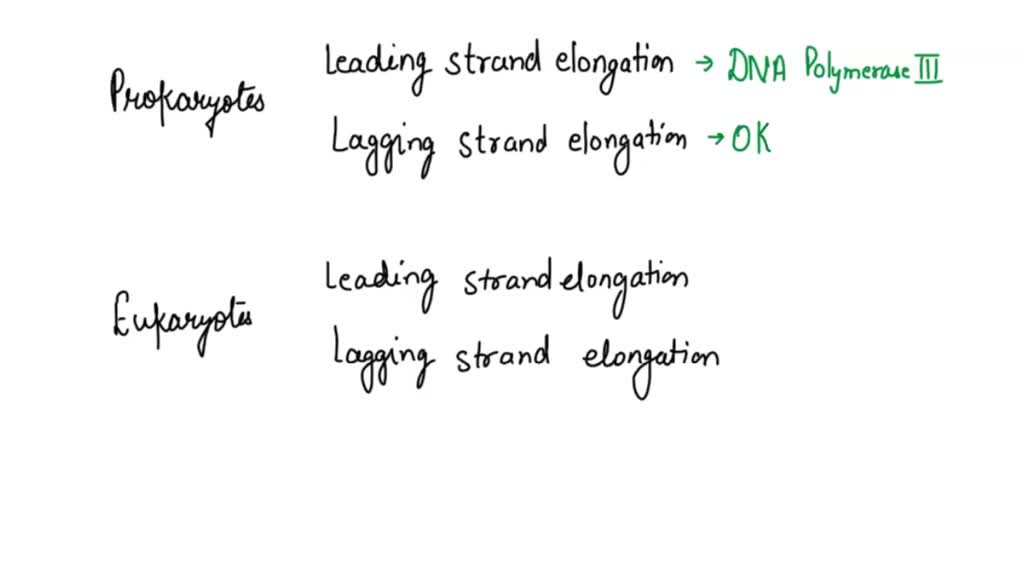 Prokaryotes
Leading strand elongation → DNA Polymerase III
Lagging strand elongation → OK
Eukaryotes
Leading strand elongation
Lagging strand elongation